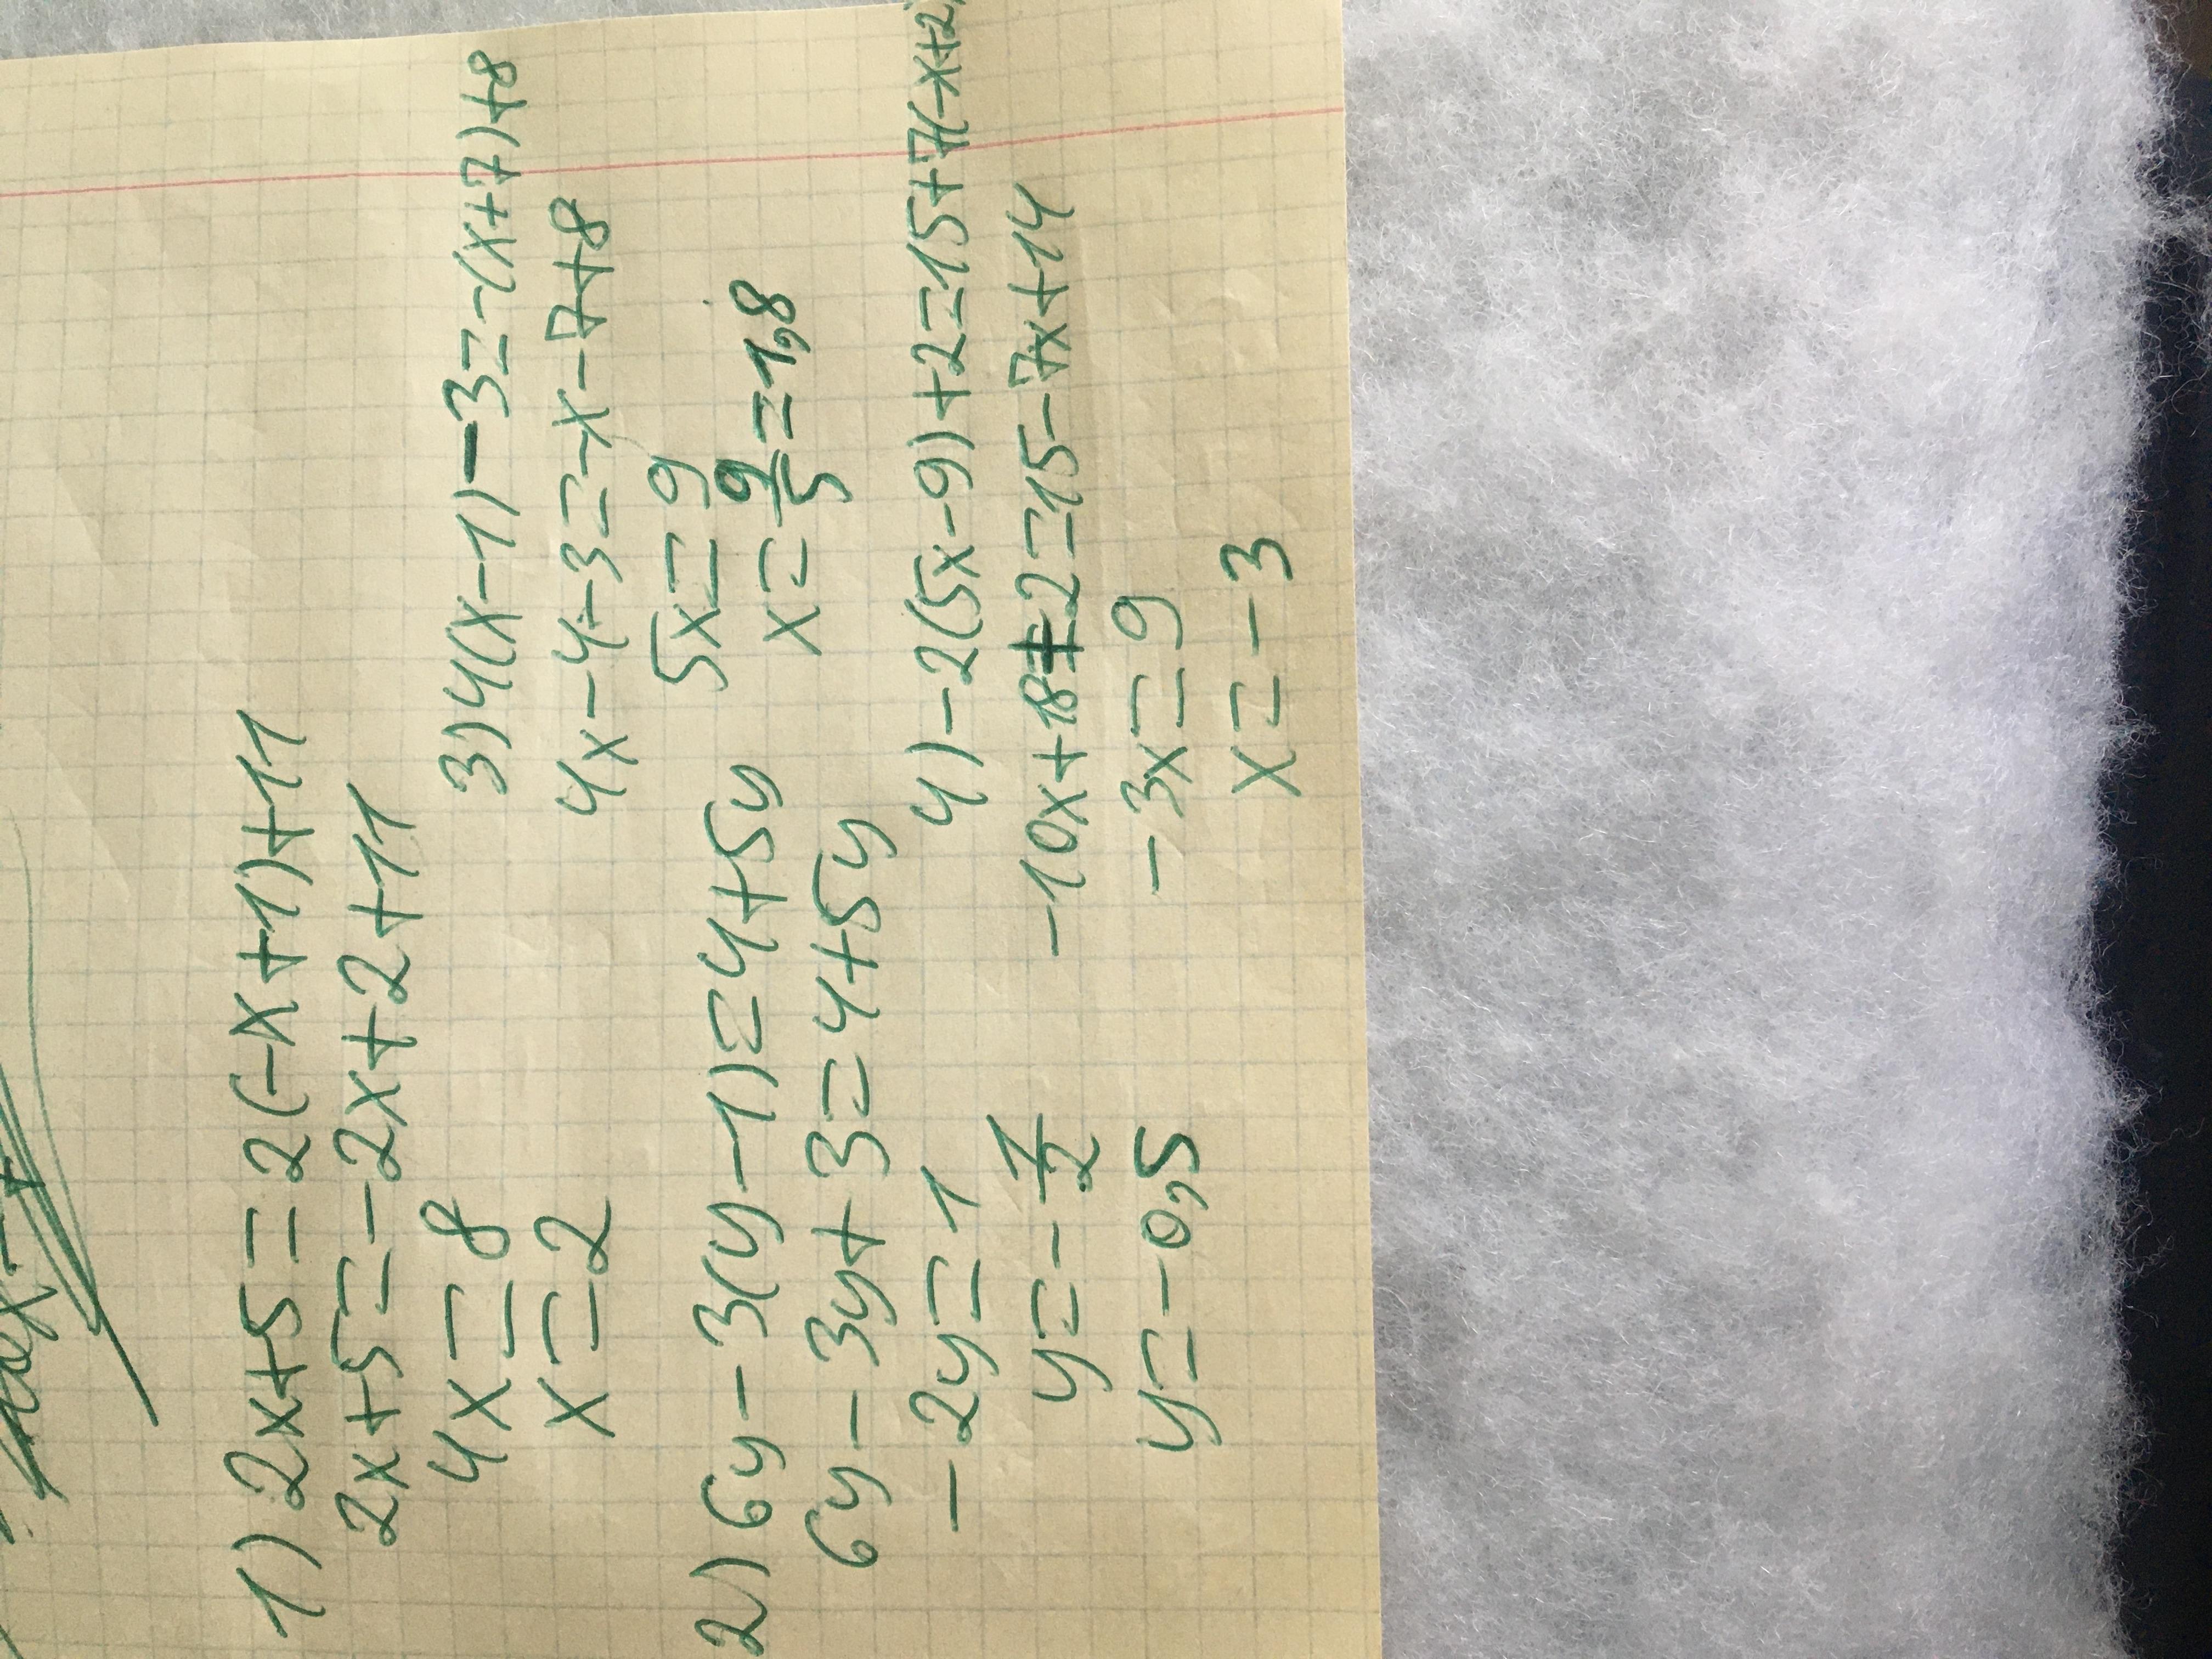 1) 2x+5=2(-x+1)+11
2x+5=-2x+2+11
4x=8
x=2
2) 6y-3(y-1)=4+5y
6y-3y+3=4+5y
-2y=1
y=-1/2
y=-0,5
3) 4(x-1)-3=-(x+7)+8
4x-4-3=-x-7+8
5x=9
x=9/5=1,8
4) -2(5x-9)+2=15+7(-x+2)
-10x+18+2=15-7x+14
-3x=9
x=-3